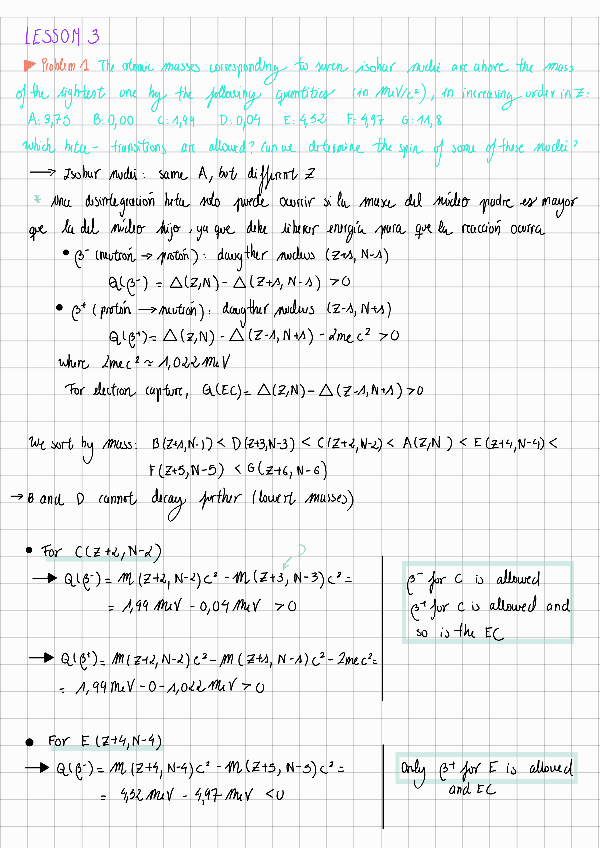 LESSON 3
▶ Problem 1 The atomic masses corresponding to seven isobar nuclei are above the mass
of the lightest one by the following quantities (in MeV/c²), in increasing order in Z:
A: 3,75 B: 0,00 C: 1,94 D: 0,04 E: 4,52 F: 4,97 G: 11,8
Which beta- transitions are allowed? Can we determine the spin of some of these nuclei?
→ Isobar nuclei: same A, but different Z
* Una desintegración beta solo puede ocurrir si la masa del núcleo padre es mayor
que la del núcleo hijo, ya que debe liberar energía para que la reacción ocurra
• β⁻ (neutrón → protón): daughter nucleus (Z+1, N-1)
Q(β⁻) = Δ(Z,N) - Δ(Z+1, N-1) > 0
• β⁺ (protón → neutrón): daughter nucleus (Z-1, N+1)
Q(β⁺) = Δ(Z,N) - Δ(Z-1, N+1) - 2mec² > 0
where 2mec² ≈ 1,022 MeV
For electron capture, Q(EC) = Δ(Z,N) - Δ(Z-1, N+1) > 0
We sort by mass: B(Z+1, N-1) < D(Z+3, N-3) < C(Z+2, N-2) < A(Z,N) < E(Z+4, N-4) <
F(Z+5, N-5) < G(Z+6, N-6)
→ B and D cannot decay further (lowest masses)
• For C(Z+2, N-2)
→ Q(β⁻) = M(Z+2, N-2)c² - M(Z+3, N-3)c² =
= 1,94 MeV - 0,04 MeV > 0
β⁻ for C is allowed
β⁺ for C is allowed and
so is the EC
→ Q(β⁺) = M(Z+2, N-2)c² - M(Z+1, N-1)c² - 2mec² =
= 1,94 MeV - 0 - 1,022 MeV > 0
• For E(Z+4, N-4)
→ Q(β⁻) = M(Z+4, N-4)c² - M(Z+5, N-5)c² =
= 4,52 MeV - 4,97 MeV < 0
Only β⁺ for E is allowed
and EC